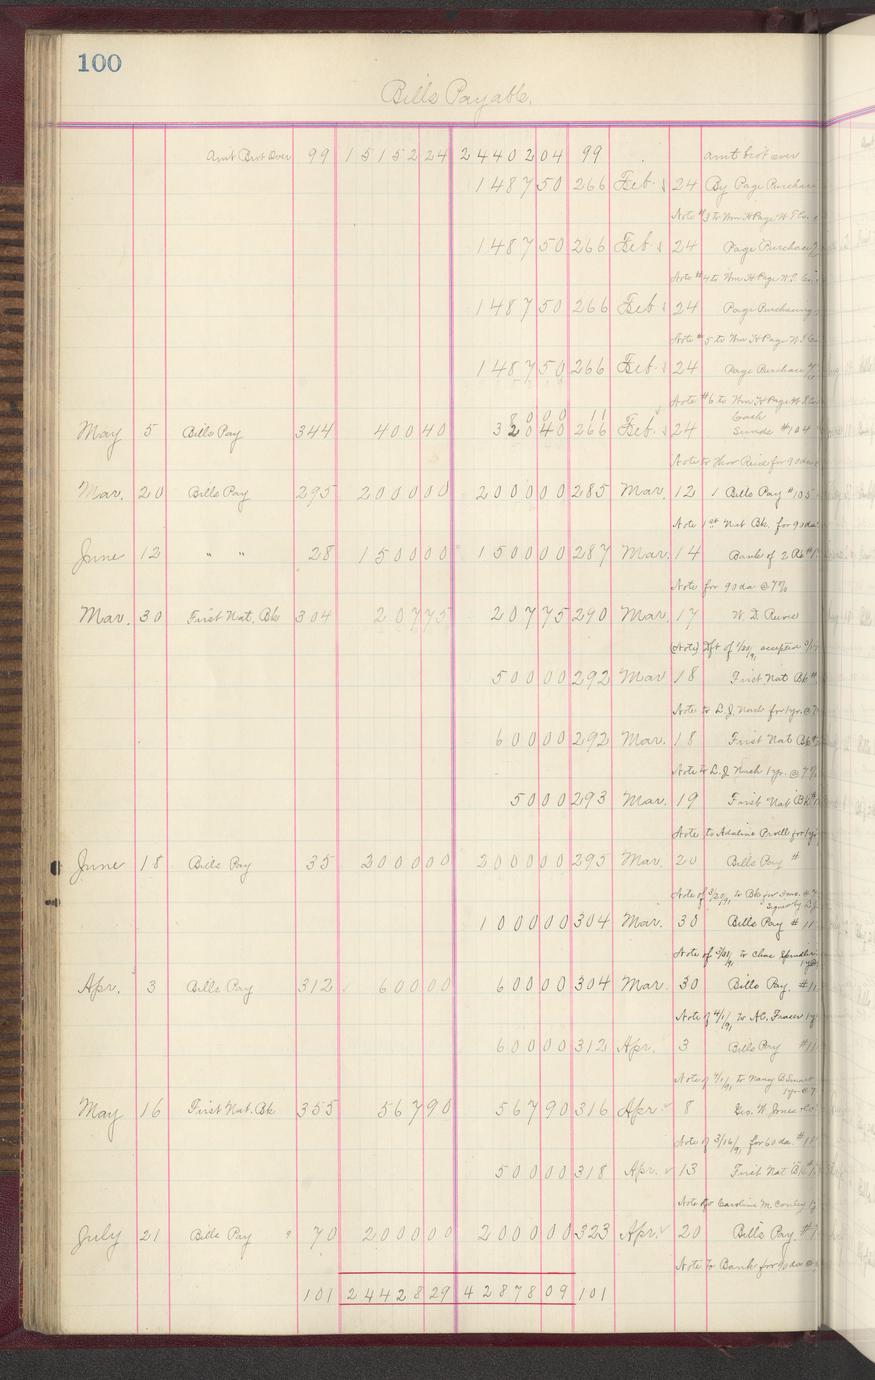 100
Bills Payable.
Am't Bro't Over 99 15152 24 24402 04 99 am't bro't over
1487 50 266 Feb. 24 By Page Purchase
Note #3 to Wm H Page
1487 50 266 Feb. 24 Page Purchase
Note #4 to Wm H Page
1487 50 266 Feb. 24 Page Purchasing
Note #5 to Wm H Page
1487 50 266 Feb. 24 Page Purchase
Note #6 to Wm H Page
80 00 11 Cash
May 5 Bills Pay 344 400 40 320 40 266 Feb. 24 Sunds #104
Note to for 90 da
Mar. 20 Bills Pay 295 2000 00 2000 00 285 Mar. 12 1 Bills Pay #105
Note 1st Nat Bk. for 90 da
June 12 " " 28 1500 00 1500 00 287 Mar. 14 Bank of
Note for 90 da @ 7%
Mar. 30 First Nat. Bk 304 207 75 207 75 290 Mar. 17 W. D.
(Note) Dft of acceptd
500 00 292 Mar 18 First Nat Bk #
Note to L. J. for 1 yr. @ 7
600 00 292 Mar. 18 First Nat Bk #
Note to L. J. 1 yr. @ 7%
50 00 293 Mar. 19 First Nat Bk #
Note to Adaline for 1 yr
June 18 Bills Pay 35 2000 00 2000 00 295 Mar. 20 Bills Pay #
Note of 3/20/91 to Bk for
Signed by L. J.
1000 00 304 Mar. 30 Bills Pay #11
Note of to Chas
Apr. 3 Bills Pay 312 600 00 600 00 304 Mar 30 Bills Pay. #11
Note of 4/1/91 to Fraser 1 y
600 00 312 Apr. 3 Bills Pay #11
Note of 4/1/91 to Nancy
1 yr @ 7
May 16 First Nat. Bk 355 567 90 567 90 316 Apr 8 Geo. W. Jones
Note of 3/16/91 for 60 da. #
500 00 318 Apr. 13 First Nat Bk #
Note to Caroline M. Conley
July 21 Bills Pay 70 2000 00 2000 00 323 Apr. 20 Bills Pay. #
Note to Bank for 90 da @
101 24428 29 42878 09 101